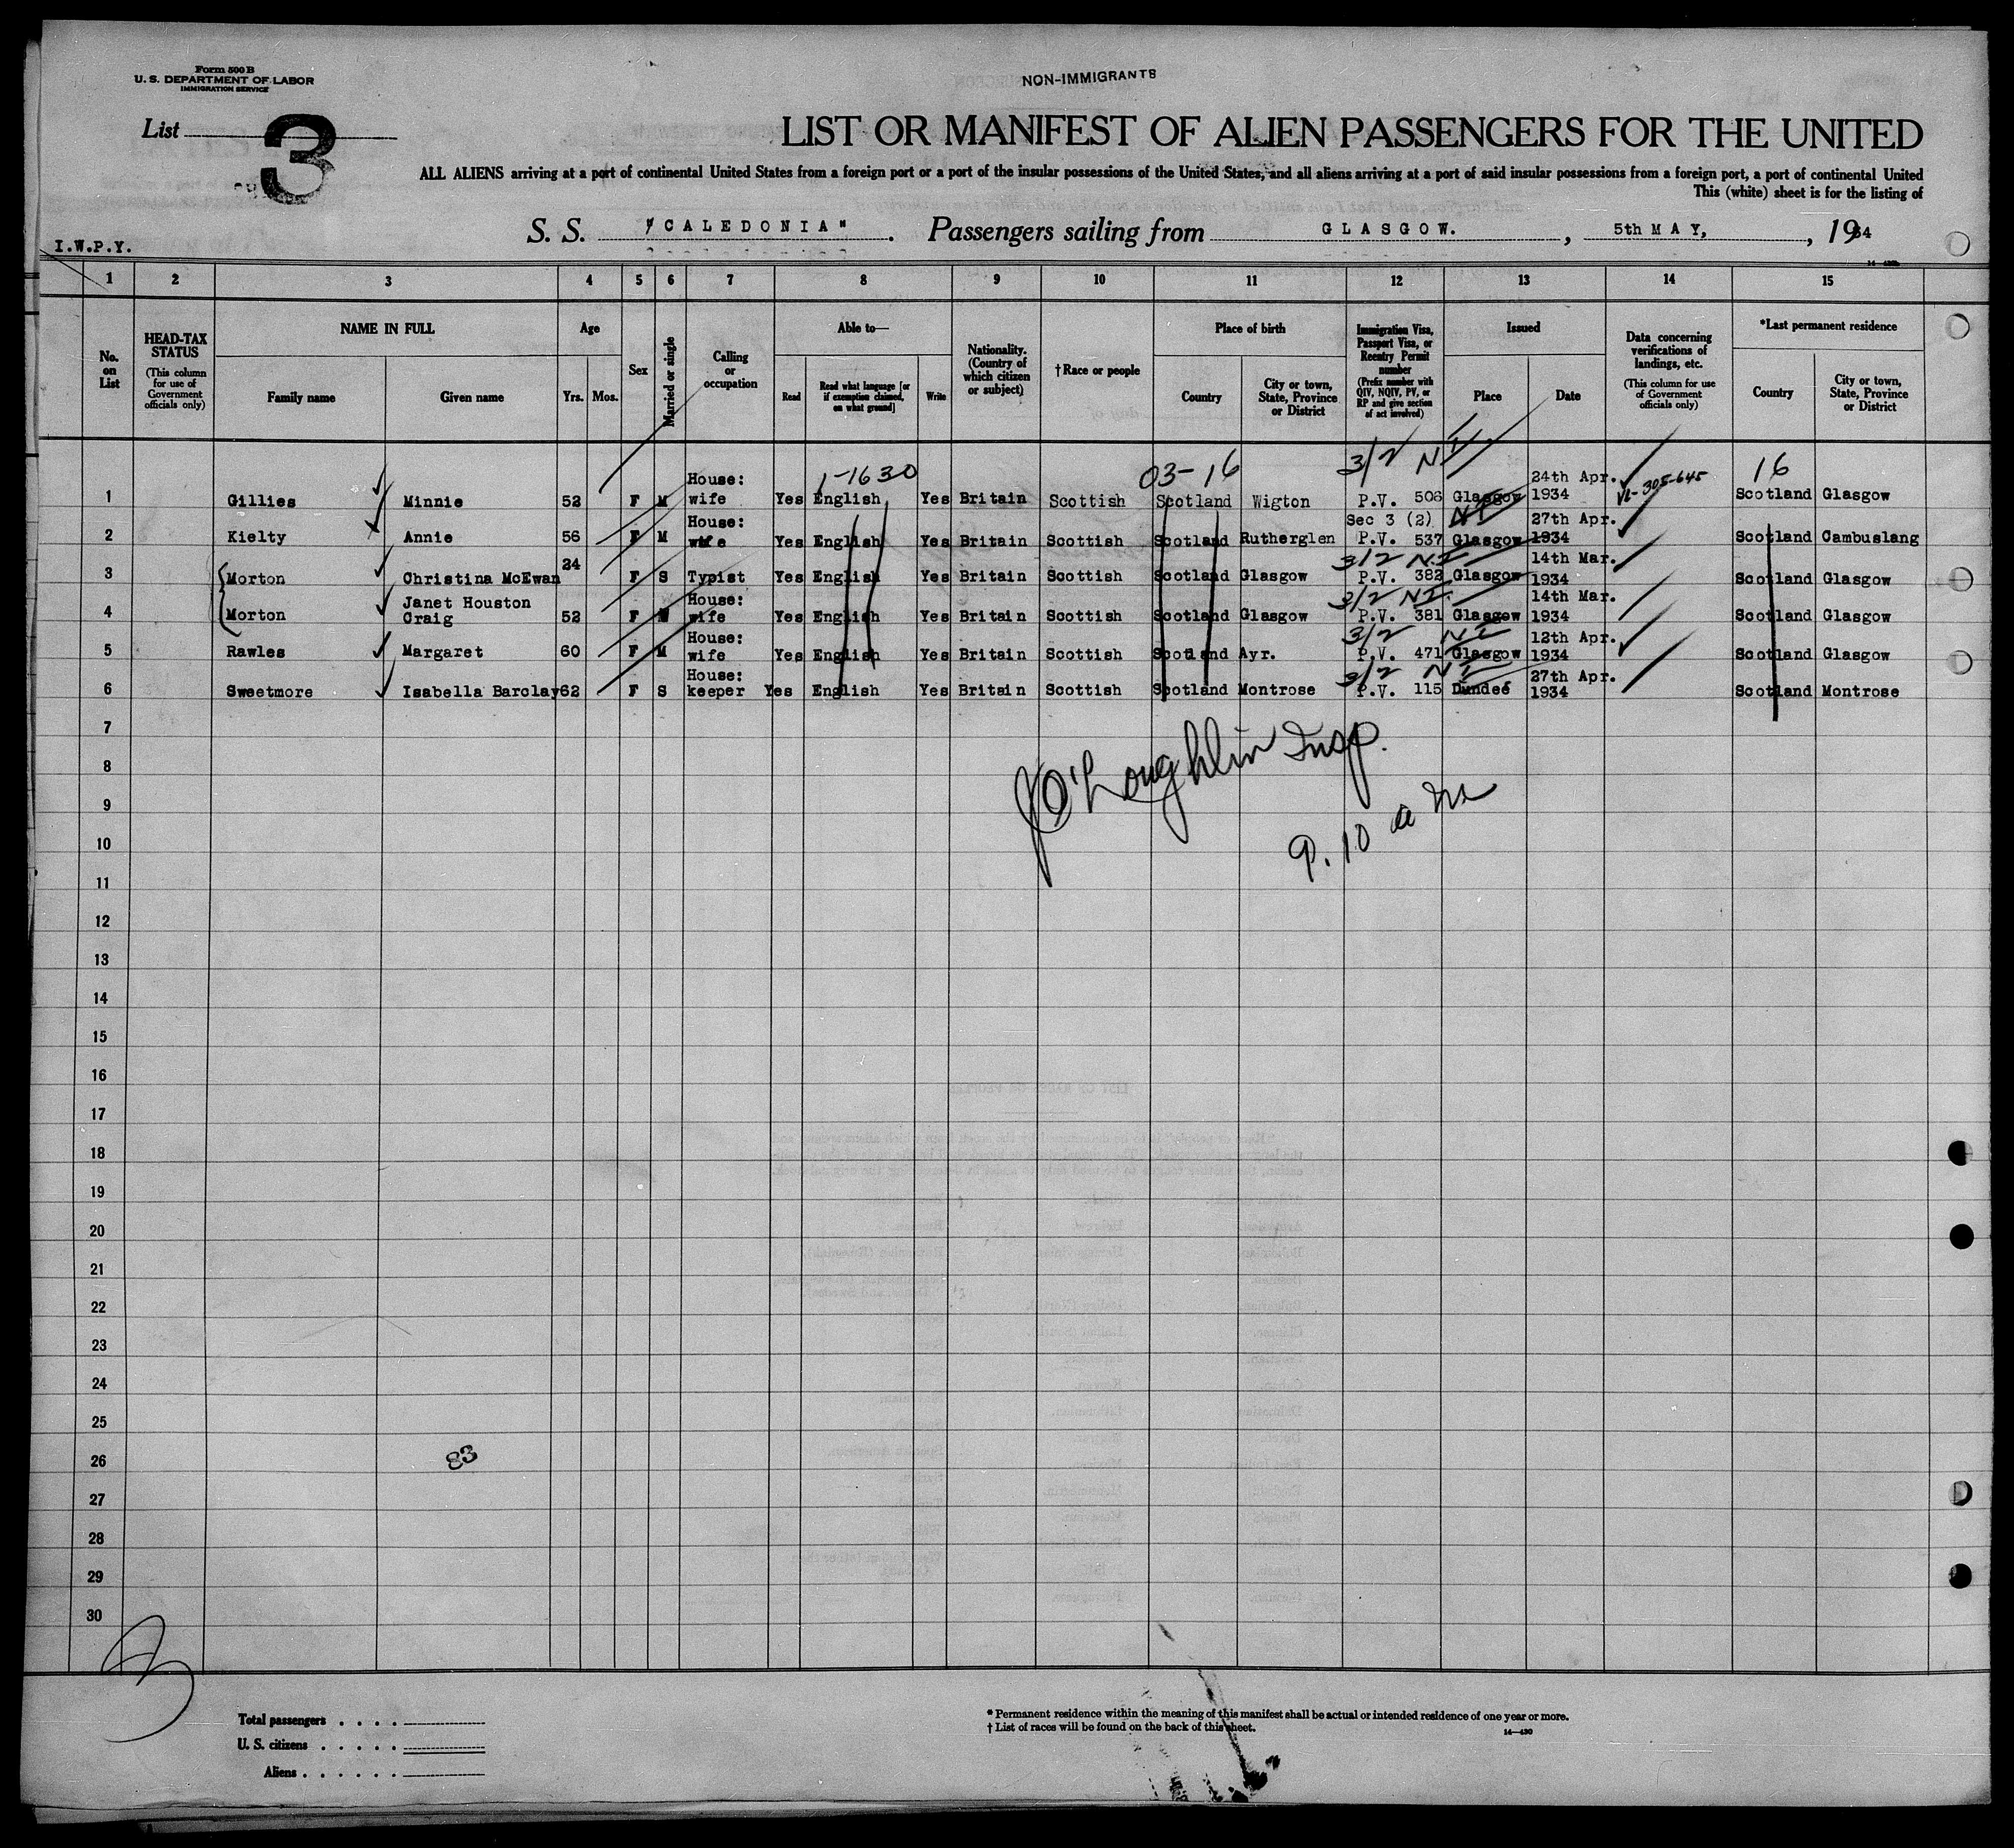 Form 500 B
U. S. DEPARTMENT OF LABOR
IMMIGRATION SERVICE
NON-IMMIGRANTS
List 3
LIST OR MANIFEST OF ALIEN PASSENGERS FOR THE UNITED
ALL ALIENS arriving at a port of continental United States from a foreign port or a port of the insular possessions of the United States, and all aliens arriving at a port of said insular possessions from a foreign port, a port of continental United
This (white) sheet is for the listing of
S. S. "CALEDONIA". Passengers sailing from GLASGOW., 5th MAY, 1934
I.W.P.Y.
1 2 3 4 5 6 7 8 9 10 11 12 13 14 15
No. on List
HEAD-TAX STATUS
(This column for use of Government officials only)
NAME IN FULL
Family name Given name
Age
Yrs. Mos.
Sex
Married or single
Calling or occupation
Able to—
Read
Read what language [or if exemption claimed, on what ground]
Write
Nationality. (Country of which citizen or subject)
†Race or people
Place of birth
Country
City or town, State, Province or District
Immigration Visa, Passport Visa, or Reentry Permit number
(Prefix number with QIV, NQIV, PV, or RP and give section of act involved)
Issued
Place Date
Data concerning verifications of landings, etc.
(This column for use of Government officials only)
*Last permanent residence
Country
City or town, State, Province or District
1-1630 03-16 3/2 NI 16
1 Gillies Minnie 52 F M House: wife Yes English Yes Britain Scottish Scotland Wigton P.V. 506 Glasgow 24th Apr. 1934 Scotland Glasgow
2 Kielty Annie 56 F M House: wife Yes English Yes Britain Scottish Scotland Rutherglen Sec 3 (2) NI P.V. 537 Glasgow 27th Apr. 1934 Scotland Cambuslang
3 Morton Christina McEwan 24 F S Typist Yes English Yes Britain Scottish Scotland Glasgow 3/2 NI P.V. 382 Glasgow 14th Mar. 1934 Scotland Glasgow
4 Morton Janet Houston Craig 52 F M House: wife Yes English Yes Britain Scottish Scotland Glasgow 3/2 NI P.V. 381 Glasgow 14th Mar. 1934 Scotland Glasgow
5 Rawles Margaret 60 F M House: wife Yes English Yes Britain Scottish Scotland Ayr. 3/2 NI P.V. 471 Glasgow 12th Apr. 1934 Scotland Glasgow
6 Sweetmore Isabella Barclay 62 F S House: keeper Yes English Yes Britain Scottish Scotland Montrose 3/2 NI P.V. 115 Dundee 27th Apr. 1934 Scotland Montrose
7
O'Loughlin Insp.
8
9
9.10 a m
10
11
12
13
14
15
16
17
18
19
20
21
22
23
24
25
26
83
27
28
29
30
3
Total passengers . . . .
U. S. citizens . . . . .
Aliens . . . . . .
* Permanent residence within the meaning of this manifest shall be actual or intended residence of one year or more.
† List of races will be found on the back of this sheet.
14—430